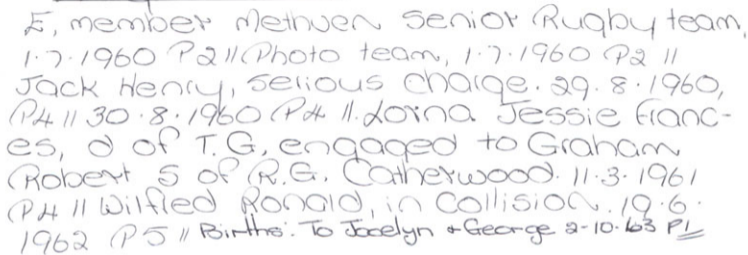 E, member Methven Senior Rugby team,
1.7.1960 P2 // Photo team, 1.7.1960 P2 //
Jack Henry, serious charge. 29.8.1960,
P4 // 30.8.1960 P4 //. Lorna Jessie Franc-
es, d of T.G, engaged to Graham
Robert S of R.G. Catherwood. 11.3.1961
P4 // Wilfred Ronald, in Collision. 19.6.
1962 P5 // Births: To Jocelyn + George 2-10-63 P1